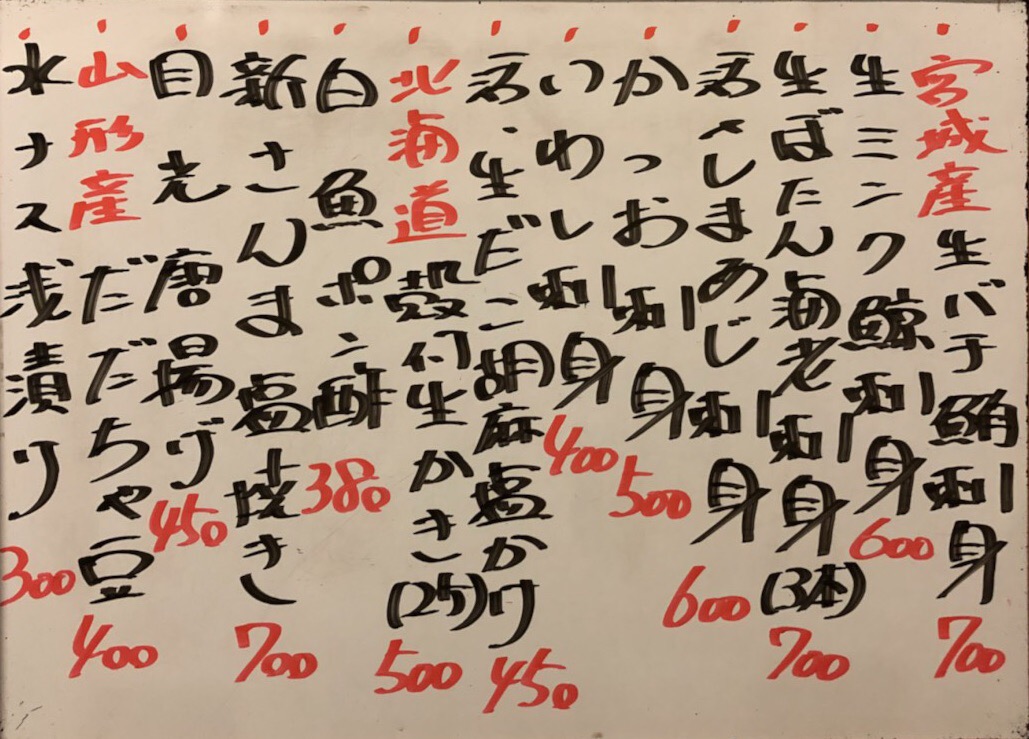 宮城産生バチ鮪刺身 700
生ミンク鯨刺身 600
生ぼたん海老刺身(3本) 700
君さしまあじ刺身 600
かつお刺身 500
いわし刺身 400
君、生だこ胡麻塩かけ 450
北海道殻付生かき(2ケ) 500
白魚ポン酢 380
新さんま塩焼き 700
目光唐揚げ 450
山形産だだちゃ豆 400
水ナス浅漬り 300